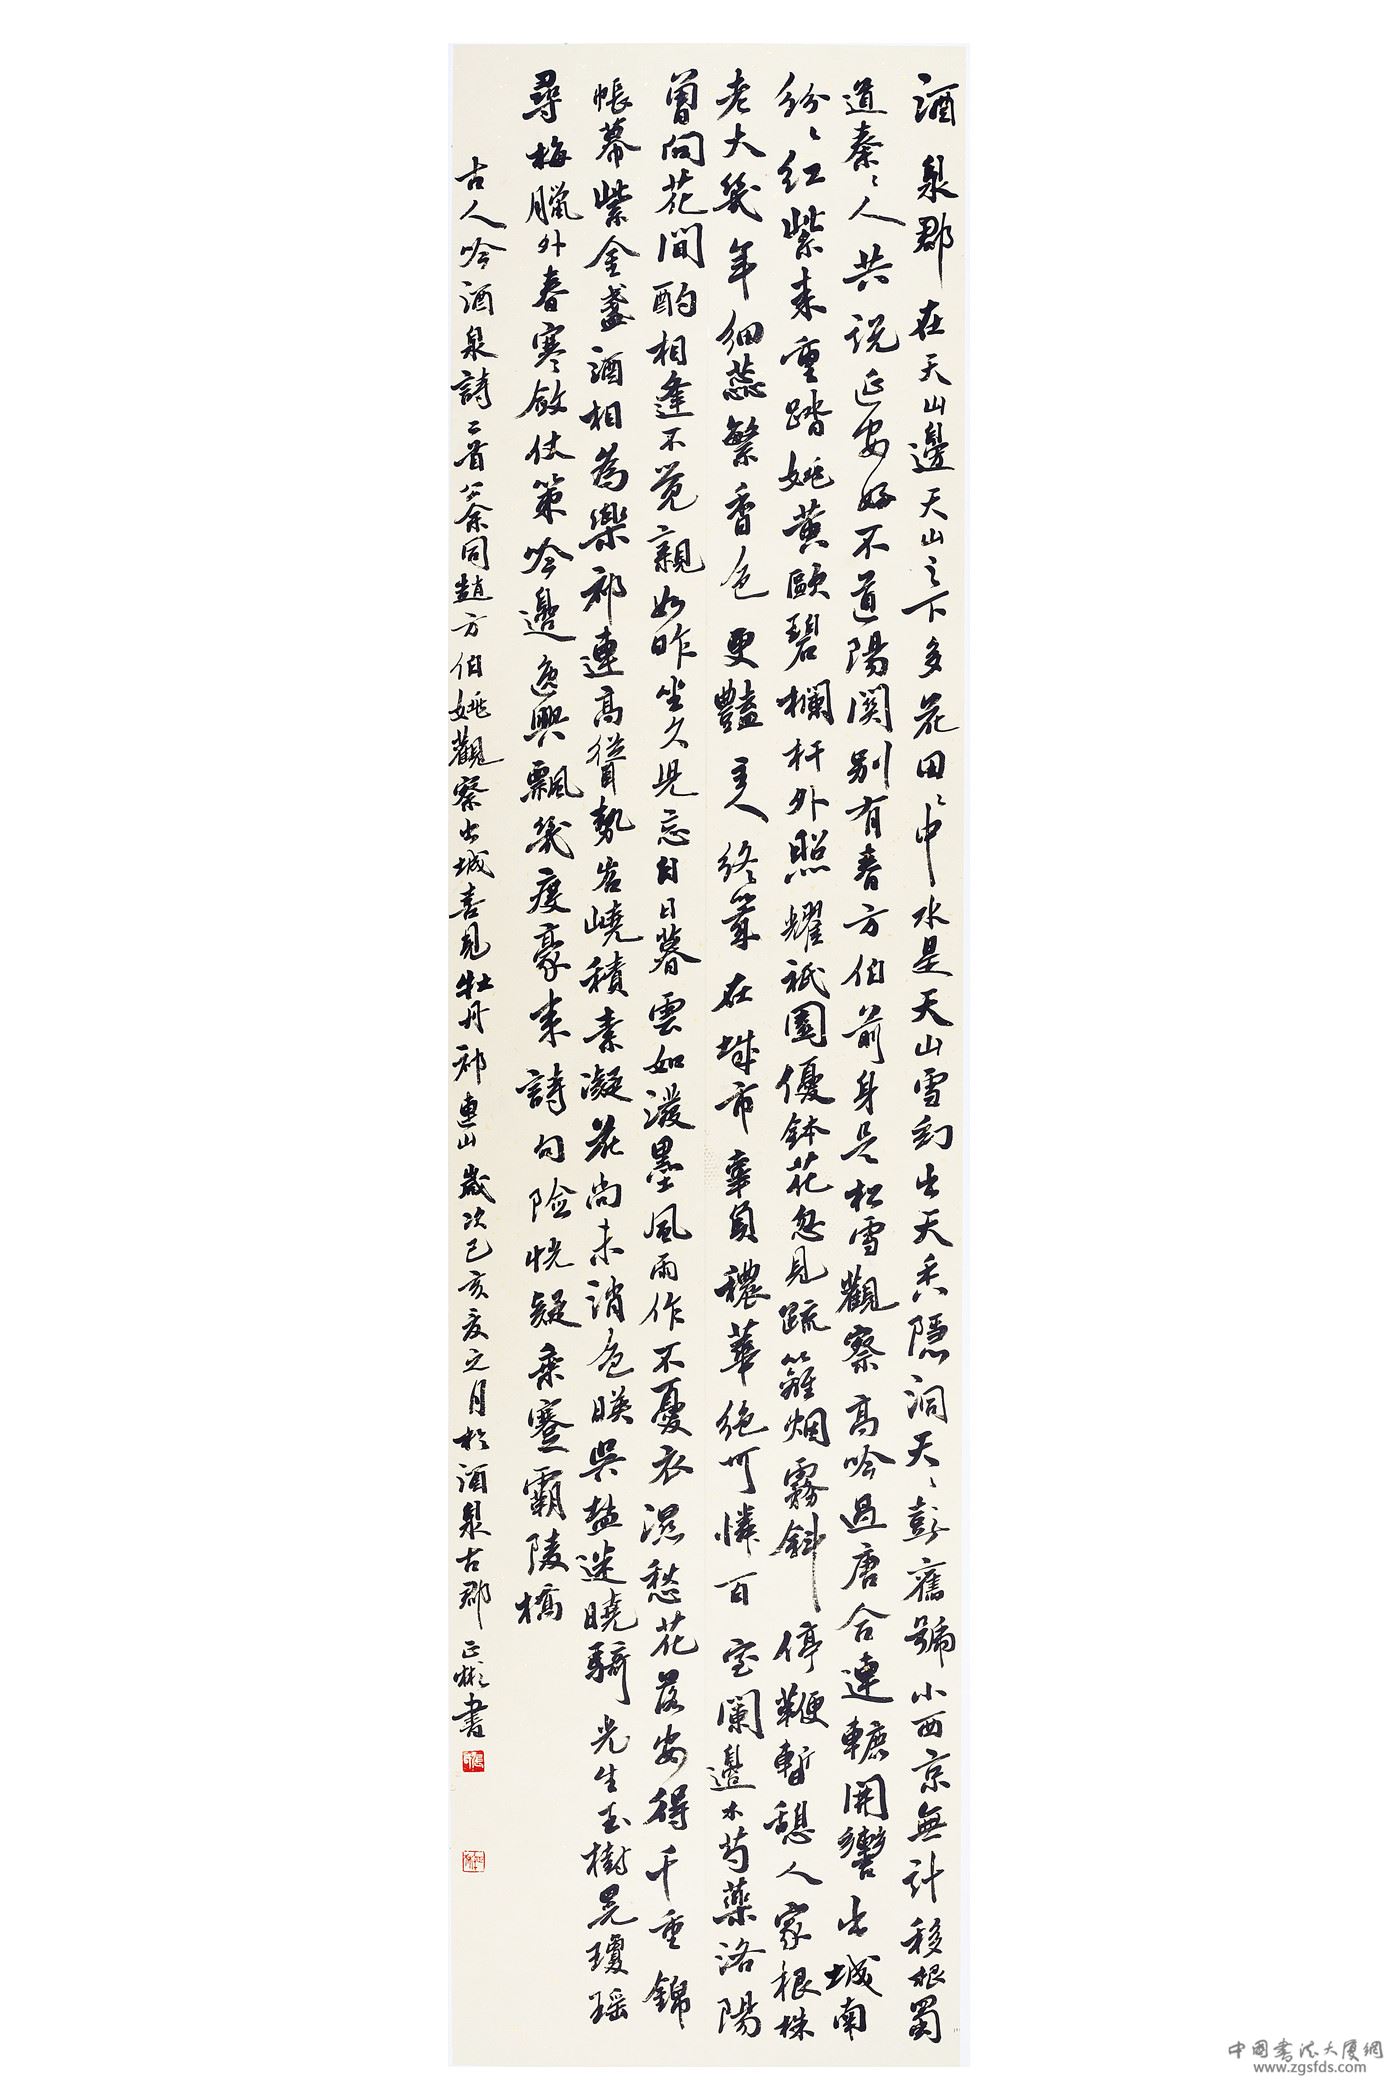 酒泉郡在天山邊天山之下多花田〻中水是天山雪幻出天香隱洞天〻彭舊號小西京無計移根蜀
道秦〻人共说延安好不道陽関别有春方伯前身是松雪觀察高吟過唐合連轆開轡出城南
紛〻紅紫来重踏姚黄歐碧欄杆外照耀祇園優鉢花忽見疏籬烟霧斜停鞭暫憩人家根株
老大幾年细蕊繁香色更豔主人終歲在城市辜負穠華絶可憐百宝闌邊木芍藥洛陽
曾向花間酌相逢不觉親如昨坐久児忘日暮雲如潑墨風雨作不憂衣濕愁花落安得千重錦
帳幕紫金盞酒相為樂祁連高聳勢岧嶢積素凝花尚未消色映吳鹽迷曉騎光生玉樹晃瓊瑶
尋梅臘外春寒斂仗策吟邊逸興飄幾度豪来詩句险恍疑乘蹇霸陵橋
古人吟酒泉詩二首奉同趙方伯姚觀察出城喜見牡丹祁連山歲次己亥夏之月於酒泉古郡正彬書
中国書法大廈網
www.zgsfds.com